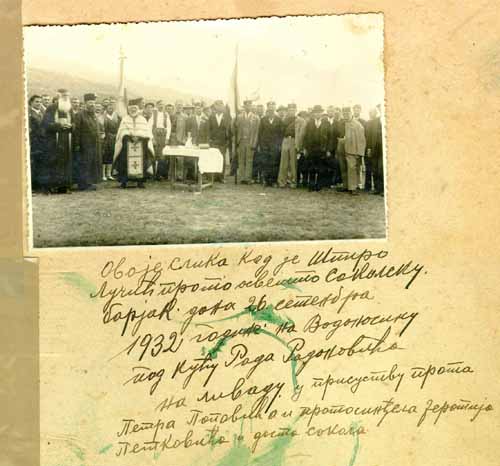 Ово је слика кад је Шпиро
Лучић прото освешто Соколску
барјак. дана 26 сетенбра
1932 године на Водоносину
под кућу Рада Радоковића
на ливаду у присуству прота
Петра Поповића и протосинђела Јеротија
Петковића и доста сокола